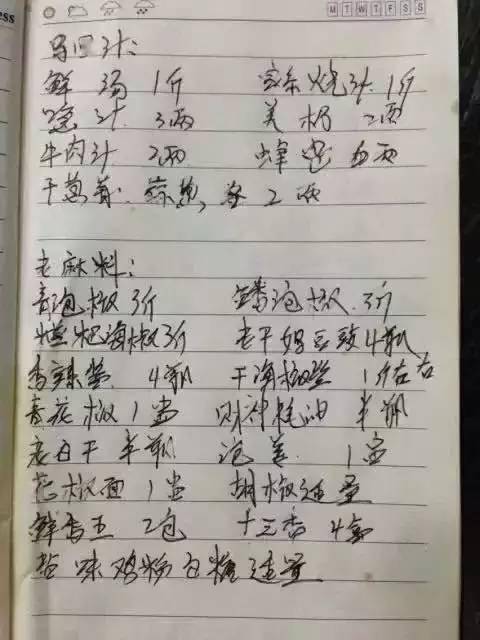 ess
M T W T F S S
汁：
鲜汤 1斤 烧汁 1斤
汁 3两 美极 2两
牛肉汁 2两 蜂蜜 5两
干葱 2两
老麻料：
青泡椒 3斤 泡椒 3斤
糍粑海椒3斤 老干妈豆豉4瓶
香辣酱 4瓶 干海椒 1斤左右
青花椒1 财神蚝油 半瓶
衣白干 半瓶 泡姜 1
花椒面 1 胡椒适量
鲜香王 2包 十三香 4盒
盐 味 鸡粉 白糖适量